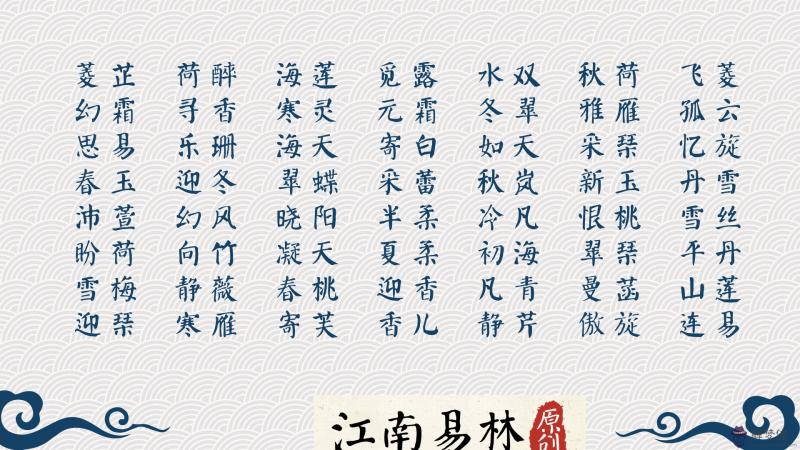 菱芷 荷醉 海莲 觅露 水双 秋荷 飞菱
幻霜 寻香 寒灵 元霜 冬翠 雅雁 孤云
思易 乐珊 海天 寄白 如天 采琹 忆旋
春玉 迎冬 翠蝶 采蕾 秋岚 新玉 丹雪
沛萱 幻风 晓阳 半柔 冷凡 恨桃 雪丝
盼荷 向竹 凝天 夏柔 初海 翠琹 平丹
雪梅 静薇 春桃 迎香 凡青 曼菡 山莲
迎琹 寒雁 寄芙 香儿 静芹 傲旋 连易
江南易林
原创